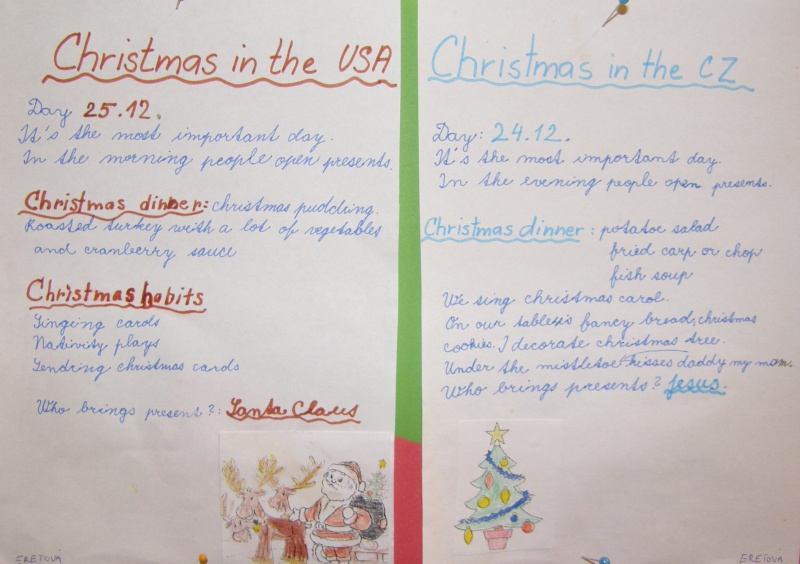 Christmas in the USA
Day 25.12.
It's the most important day.
In the morning people open presents.
Christmas dinner: christmas pudding.
Roasted turkey with a lot of vegetables
and cranberry sauce
Christmas habits
Singing carols
Nativity plays
Sending christmas cards
Who brings present?: Santa Claus
ERETOVÁ
Christmas in the CZ
Day: 24.12.
It's the most important day.
In the evening people open presents.
Christmas dinner: potatoe salad
fried carp or chop
fish soup
We sing christmas carol.
On our table is fancy bread, christmas
cookies. I decorate christmas tree.
Under the mistletoe kisses daddy my mom.
Who brings presents? Jesus.
ERETOVÁ